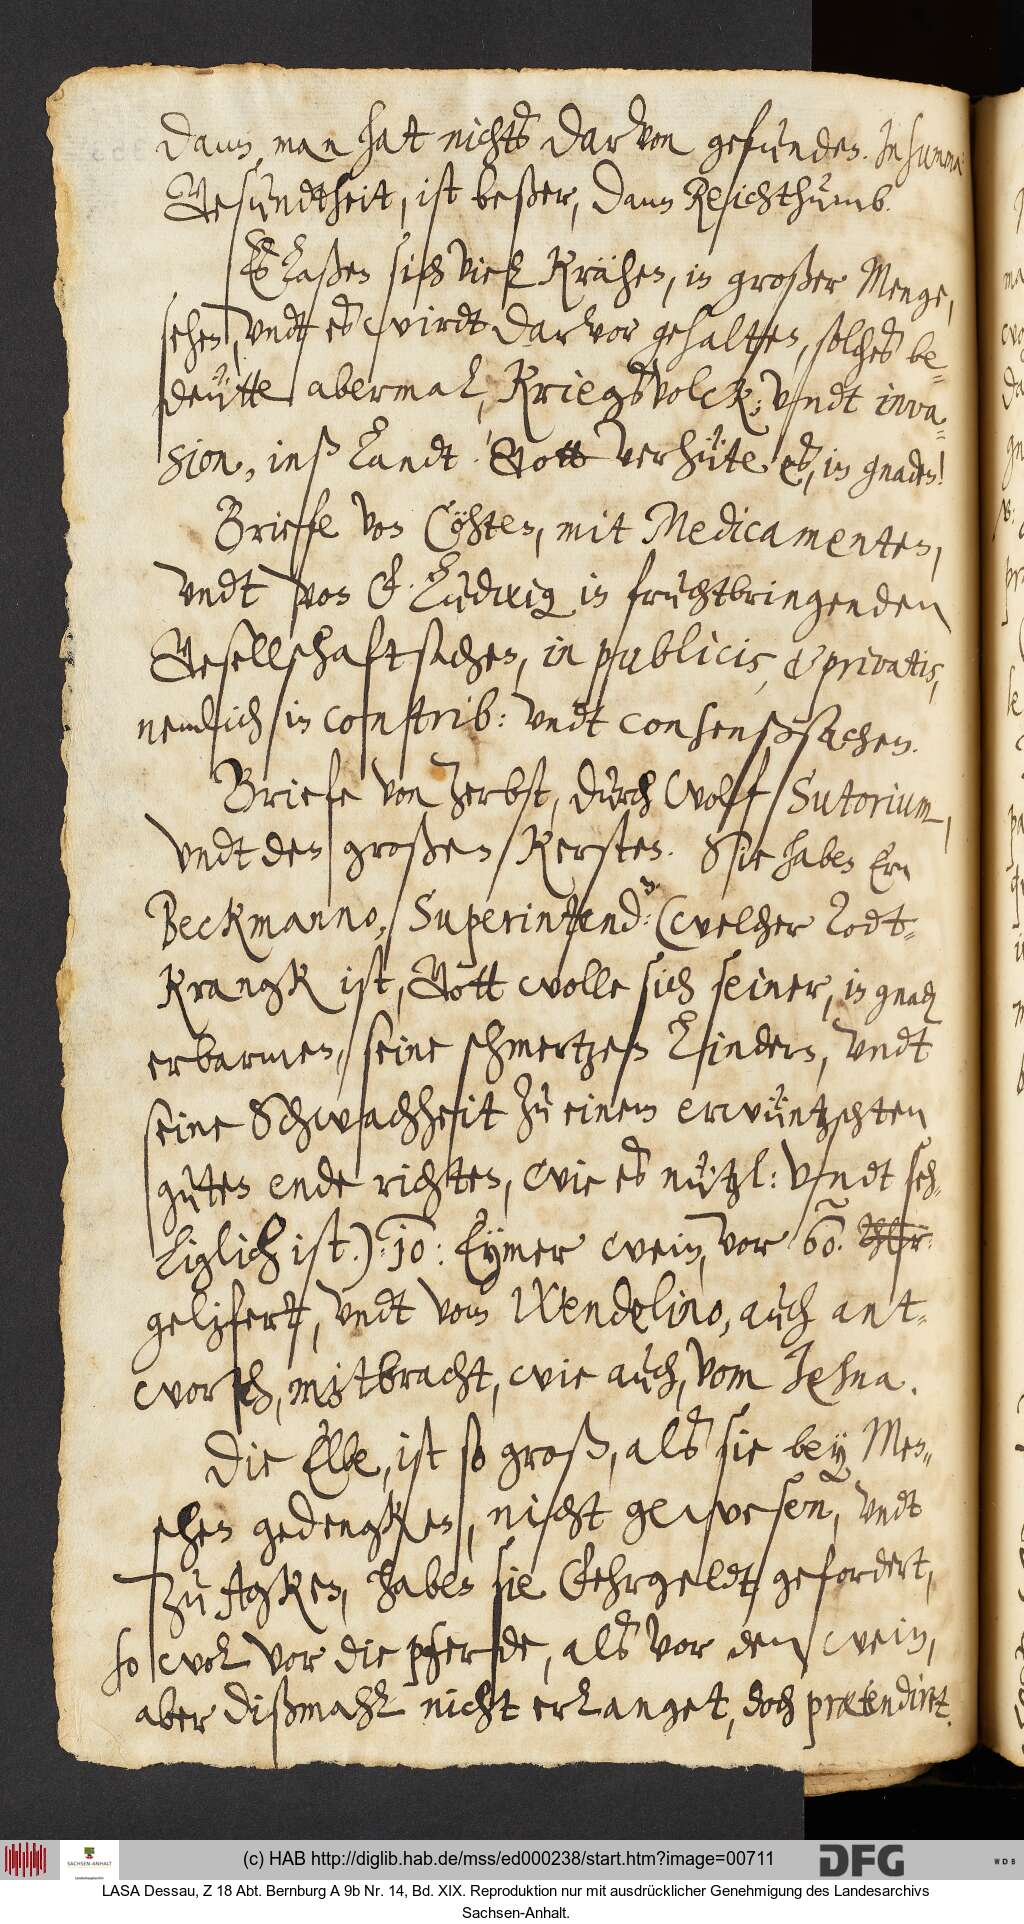 dann, man hat nichts darvon gefunden. In summa
Gesundtheit, ist beßer, dann Reichthumb.
Es laßen sich viel Krähen, in großer Menge,
sehen, vndt es wirdt darvor gehalten, solches be-
deütte abermal, Kriegsvolck; vndt inva-
sion, inß Landt. Gott verhüte es, in gnaden!
Brieffe von Cöhten, mit Medicamenten,
vndt von F. Ludwig in fruchtbringenden
Gesellschaftsachen, in publicis, & privatis,
nemlich in contrib: vndt consensßsachen.
Briefe von Zerbst, durch Wolf Sutorium,
vndt den großen Kersten. Sie haben Ern
Beckmanno, Superintend:en (welcher Todt-
krangk ist, Gott wolle sich seiner, in gnaden
erbarmen, seine schmertzen lindern, vndt
seine Schwachheit zu einem erwüntzschten
guten ende richten, wie es nützl: vndt seh-
liglich ist.) 10: Eymer wein, vor 60. Thlr:
geliefert, vndt vom Wendelino, auch ant-
wortt, mitbracht, wie auch, vom Jehna.
Die Elbe, ist so groß, als sie bey Men-
schen gedengken, nicht gewesen, vndt
zu Agken, haben sie Fehrgeldt gefordert,
so wol vor die pferde, als vor den wein,
aber dißmahl nicht erlanget, doch prætendiret.
(c) HAB http://diglib.hab.de/mss/ed000238/start.htm?image=00711
SACHSEN-ANHALT
DFG
WDB
LASA Dessau, Z 18 Abt. Bernburg A 9b Nr. 14, Bd. XIX. Reproduktion nur mit ausdrücklicher Genehmigung des Landesarchivs
Sachsen-Anhalt.